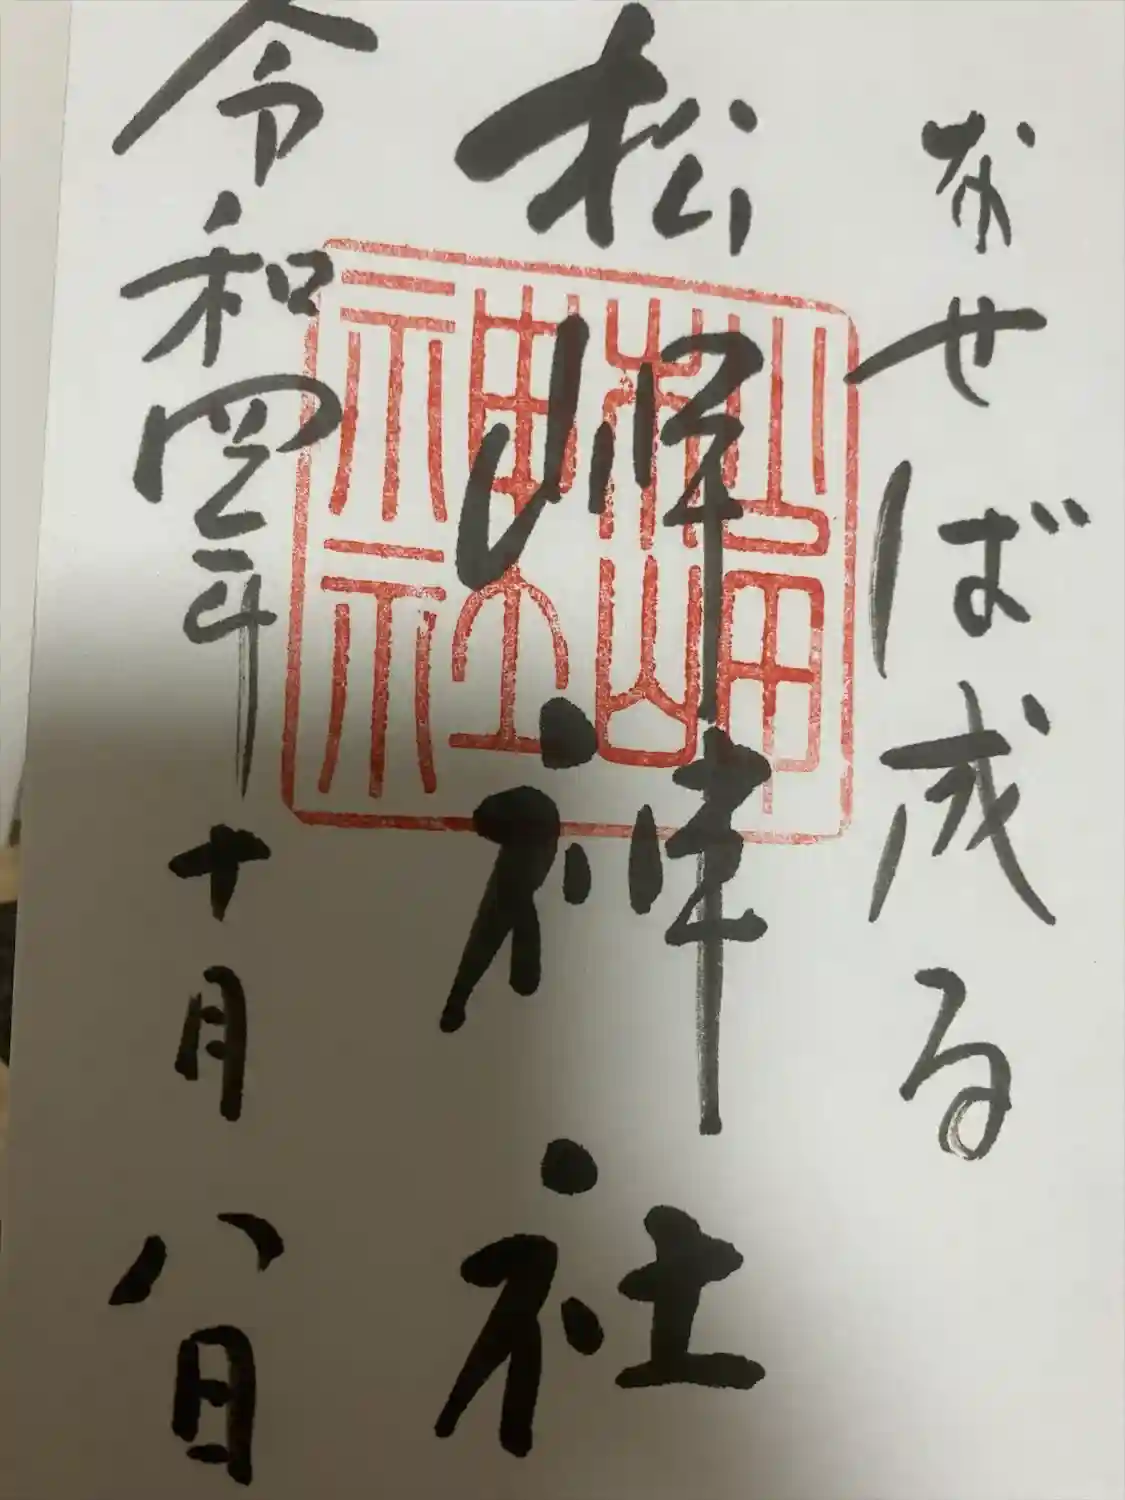 なせば成る
松岬神社
松岬神社
令和四年十月八日